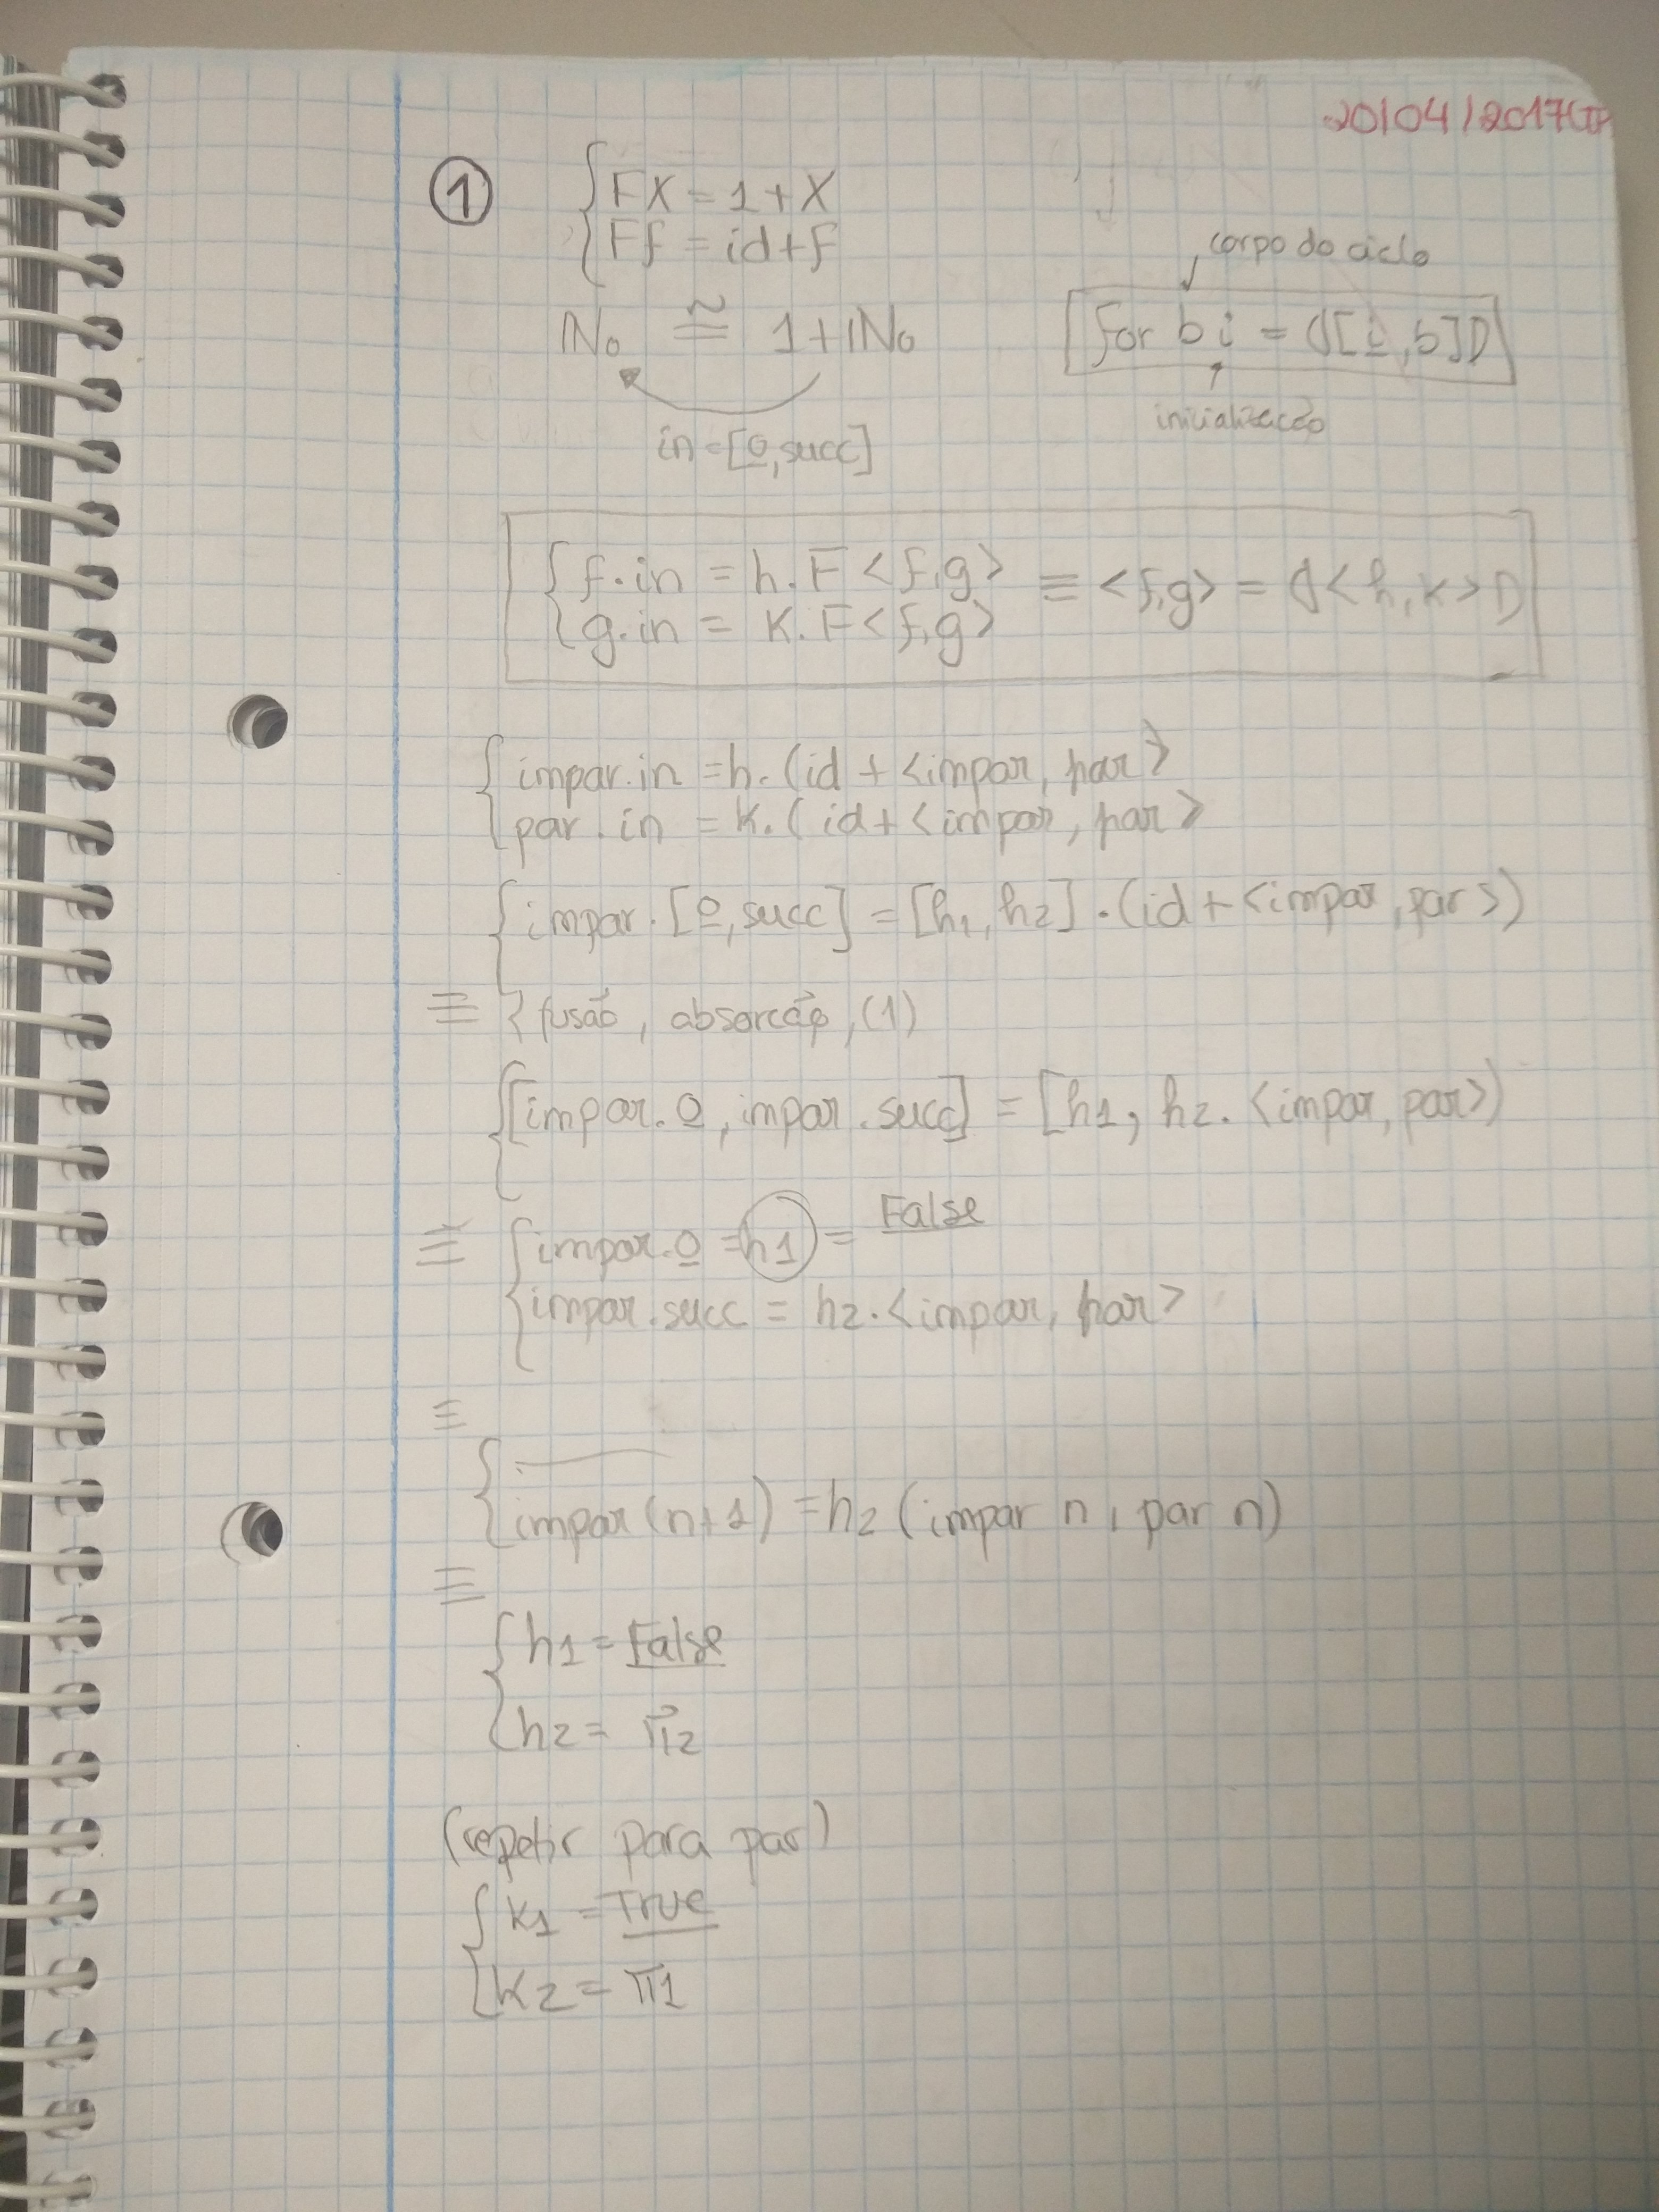 20/04/2017 (TP
①
{ FX = 1 + X
{ Ff = id + f
corpo do ciclo
IN₀ ≅ 1 + IN₀
for b i = ⦇[i̲, b]⦈
inicialização
in = [0̲, succ]
{ f.in = h. F <f,g>
{ g.in = K. F <f,g>
≡ <f,g> = ⦇<h,k>⦈
{ impar.in = h. (id + <impar, par>
{ par.in = K. (id + <impar, par>
{ impar.[0̲, succ] = [h₁, h₂] . (id + <impar, par>)
≡ { fusão, absorção, (1)
{ [impar.0̲, impar.succ] = [h1, h2. <impar, par>)
≡ { impar.0̲ = h1 = F̲a̲l̲s̲e̲
{ impar.succ = h2.<impar, par>
≡
{ impar(n+1) = h₂ (impar n, par n)
≡
{ h1 = F̲a̲l̲s̲e̲
{ h2 = π₂
(repetir para par)
{ K1 = T̲r̲u̲e̲
{ K2 = π1